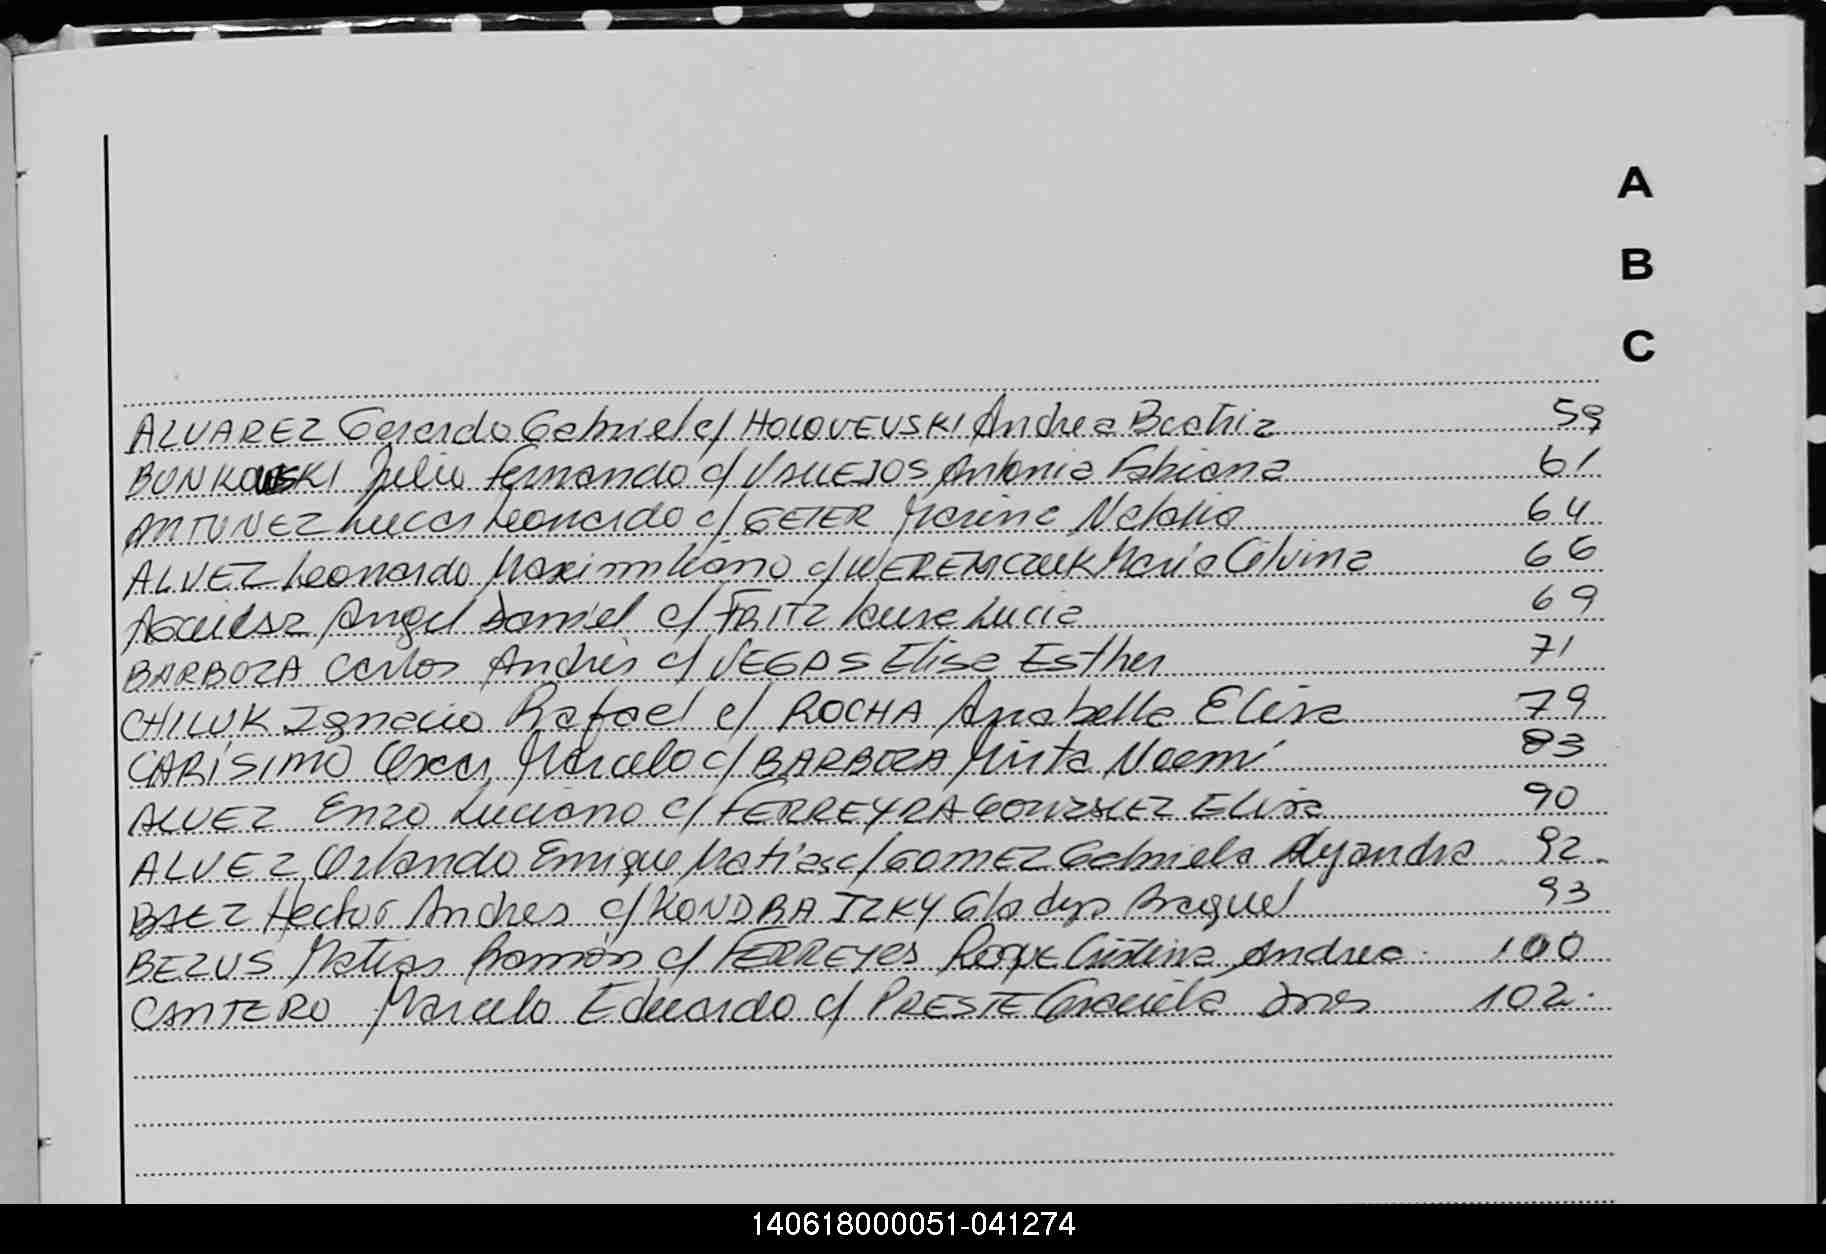 A
B
C
ALVAREZ Gerardo Gabriel c/ HOLOVEVSKI Andrea Beatriz 59
BONKOWSKI Julio Fernando c/ VALLEJOS Antonia Fabiana 61
ANTUNEZ Lucas Leonardo c/ GEIER Marina Natalia 64
ALVEZ Leonardo Maximiliano c/ WEREMCZUK María Silvina 66
AGUILAR Angel Daniel c/ FRITZ Laura Lucia 69
BARBOZA Carlos Andrés c/ VEGAS Elisa Esther 71
CHILUK Ignacio Rafael c/ ROCHA Anabella Elisa 79
CARÍSIMO Oscar Marcelo c/ BARBOZA Mirta Noemí 83
ALVEZ Enzo Luciano c/ FERREYRA GONZALEZ Elisa 90
ALVEZ Orlando Enrique Matias c/ GOMEZ Gabriela Alejandra 92
BAEZ Hector Andres c/ KONDRATZKY Gladys Raquel 93
BEZUS Matias Ramón c/ FERREYES Roque Cristina Andrea 100
CANTERO Marcelo Eduardo c/ PRESTE Graciela Ines 102
140618000051-041274